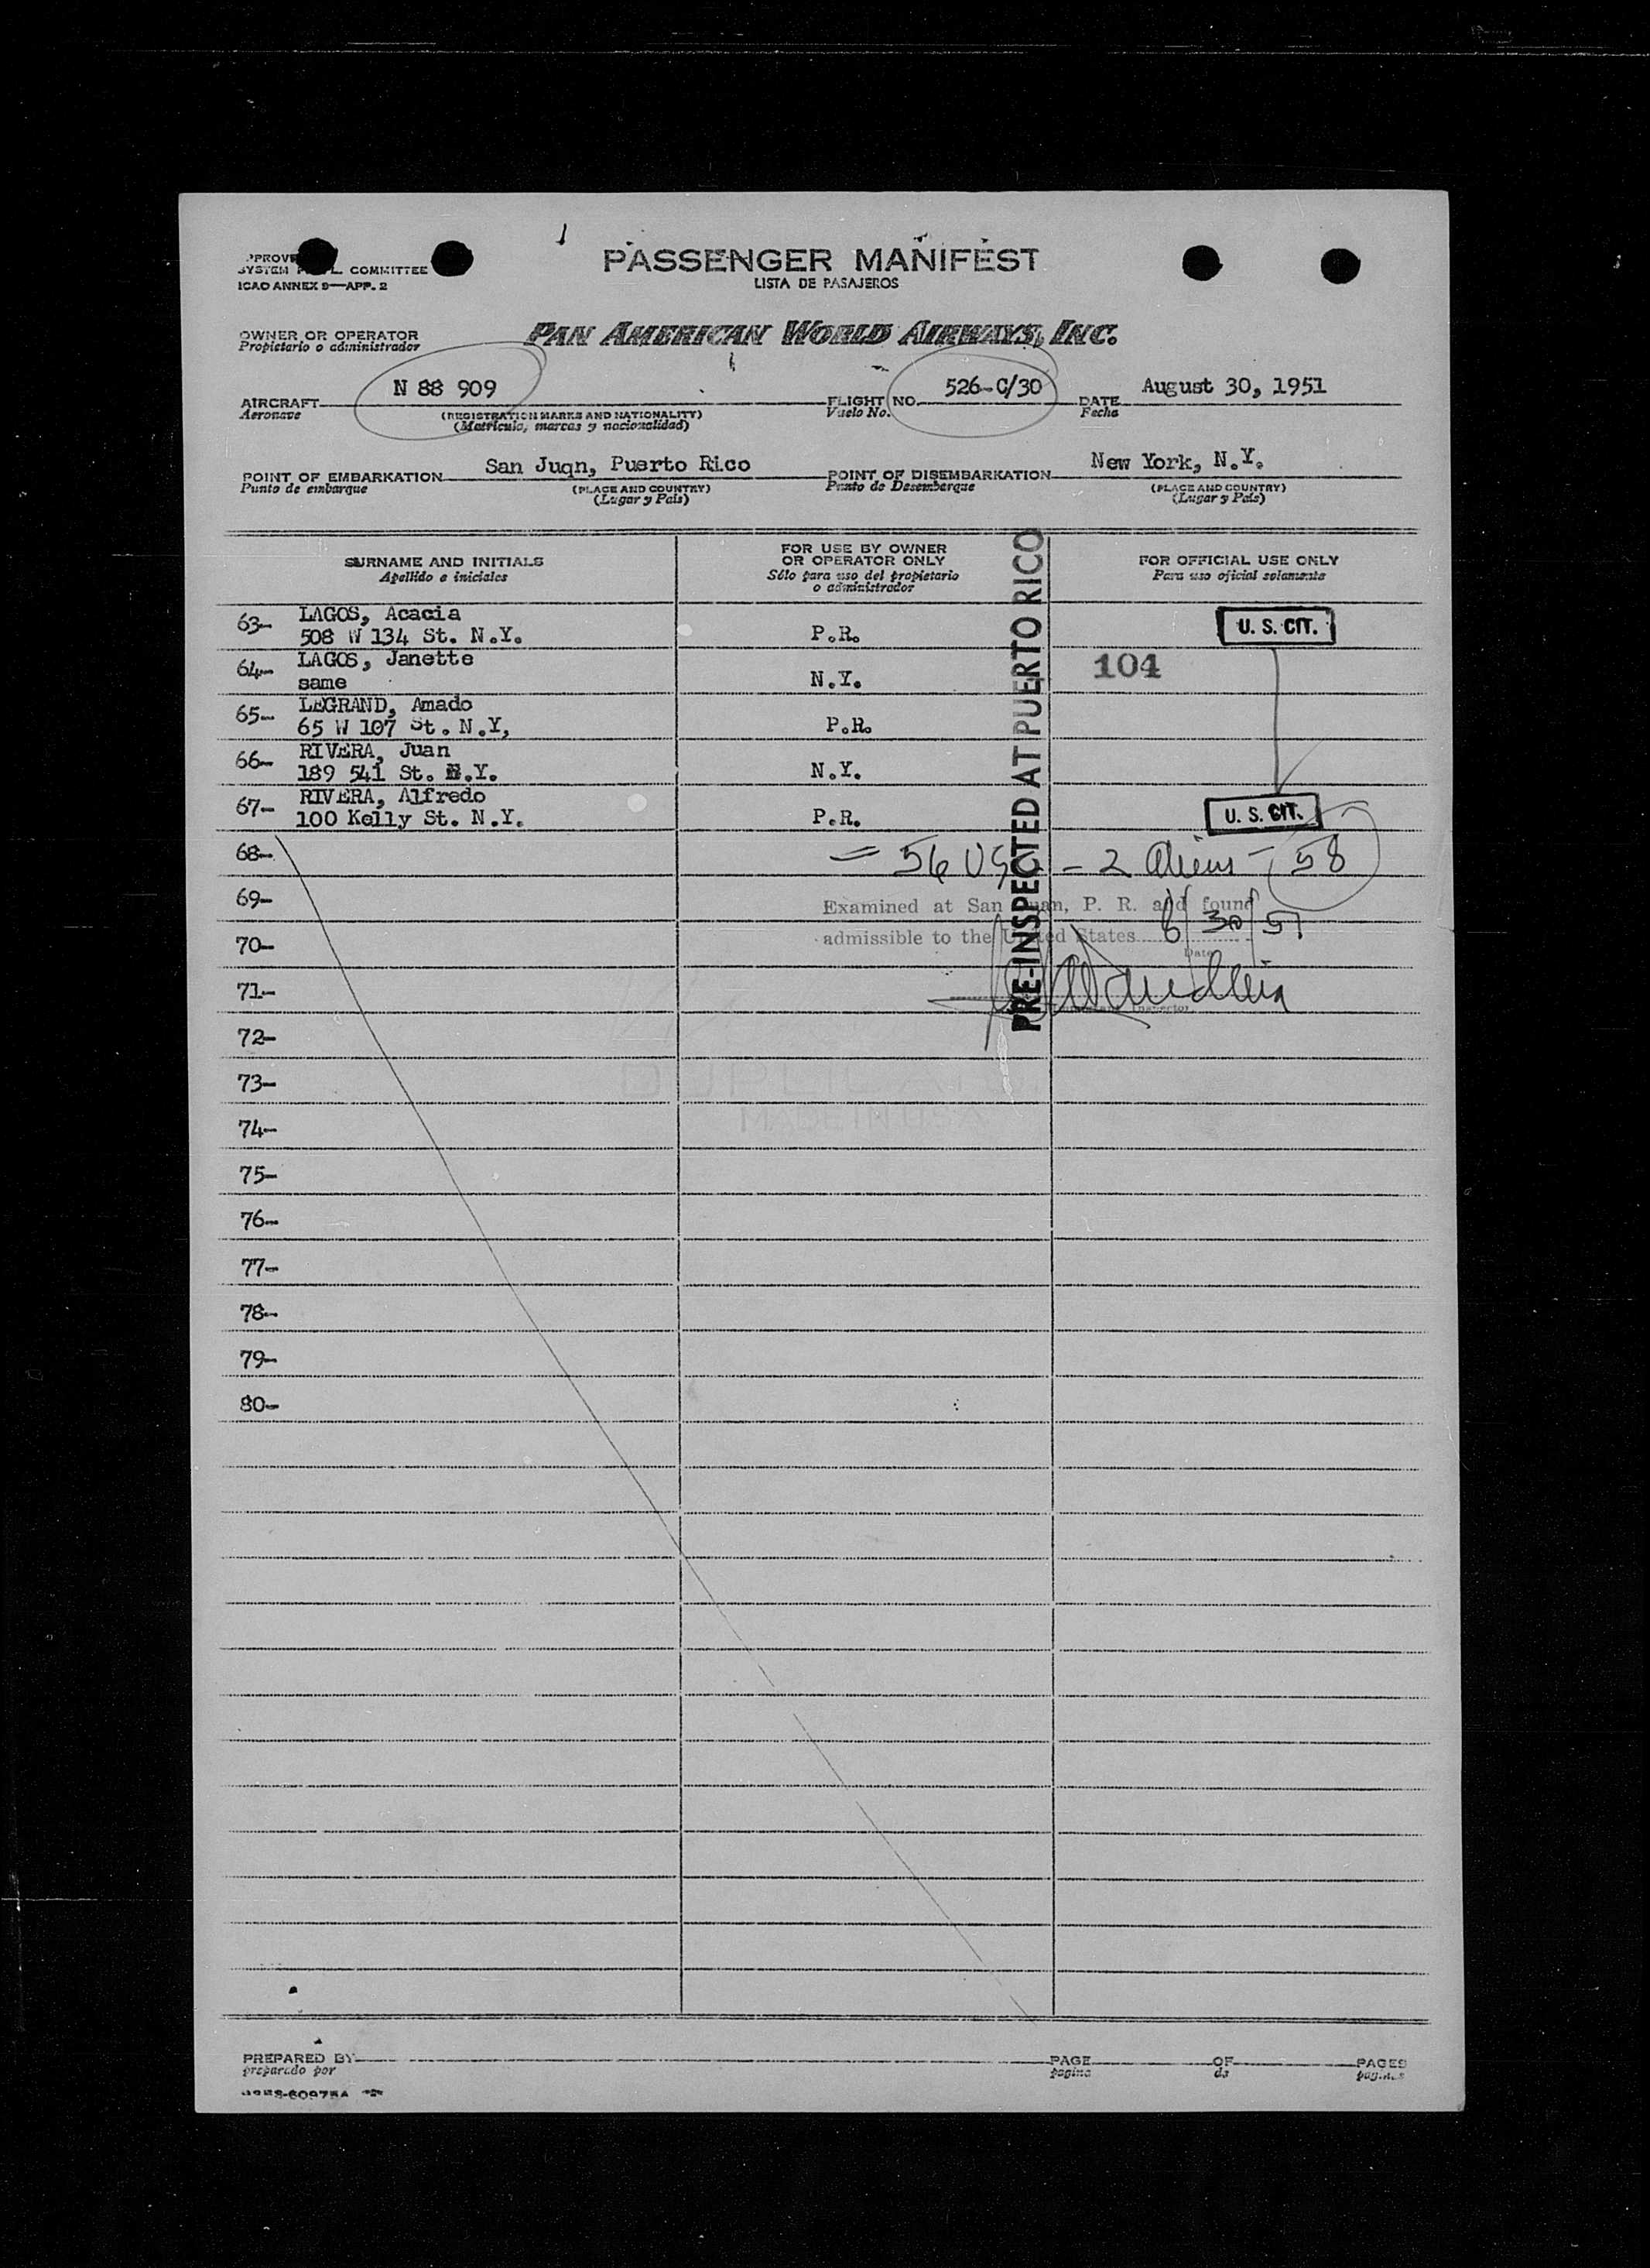 PASSENGER MANIFEST
LISTA DE PASAJEROS
SYSTEM COMMITTEE
ICAO ANNEX 9—APP. 2
OWNER OR OPERATOR
Propietario o administrador
PAN AMERICAN WORLD AIRWAYS, INC.
AIRCRAFT N 88 909 FLIGHT NO. 526-C/30 DATE August 30, 1951
Aeronave (REGISTRATION MARKS AND NATIONALITY) Vuelo No. Fecha
(Matrícula, marcas y nacionalidad)
POINT OF EMBARKATION San Juqn, Puerto Rico POINT OF DISEMBARKATION New York, N.Y.
Punto de embarque (PLACE AND COUNTRY) Punto de Desembarque (PLACE AND COUNTRY)
(Lugar y País) (Lugar y País)
SURNAME AND INITIALS FOR USE BY OWNER OR OPERATOR ONLY FOR OFFICIAL USE ONLY
Apellido e iniciales Sólo para uso del propietario o administrador Para uso oficial solamente
PRE-INSPECTED AT PUERTO RICO
63- LAGOS, Acacia U. S. CIT.
508 W 134 St. N.Y. P.R.
64- LAGOS, Janette 104
same N.Y.
65- LEGRAND, Amado
65 W 107 St. N.Y, P.R.
66- RIVERA, Juan
189 541 St. N.Y. N.Y.
67- RIVERA, Alfredo
100 Kelly St. N.Y. P.R. U. S. CIT.
68- = 56 USC - 2 Aliens - 58
69- Examined at San Juan, P. R. and found
70- admissible to the United States 8/30/51
Date
71- Inspector
72-
73-
DUPLICATE
74- MADE IN U.S.A.
75-
76-
77-
78-
79-
80-
PREPARED BY PAGE OF PAGES
preparado por pagina de paginas